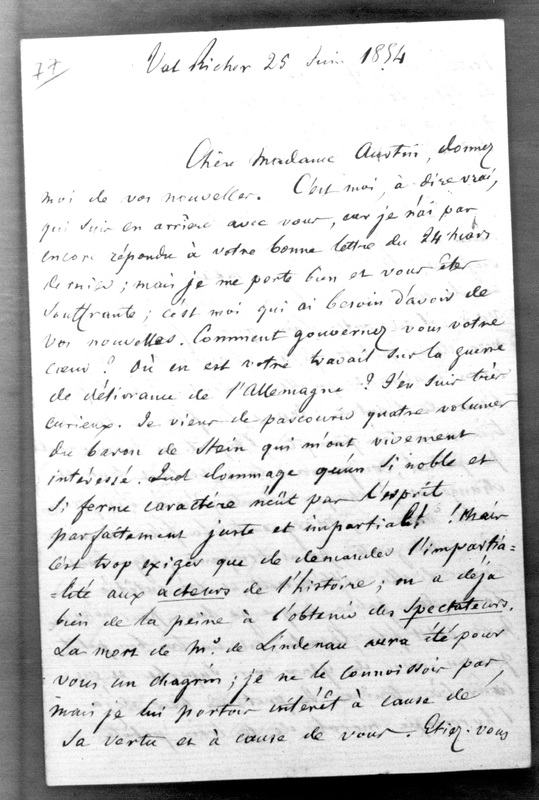 77
Val Richer 25 Juin 1854
Chère Madame Austin, donnez
moi de vos nouvelles. C'est moi, à dire vrai,
qui suis en arrière avec vous, car je n'ai pas
encore répondu à votre bonne lettre du 24 mars
dernier ; mais je me porte bien et vous êtes
souffrante ; c'est moi qui ai besoin d'avoir de
vos nouvelles. Comment gouvernez vous votre
cœur ? Où en est votre travail sur la guerre
de délivrance de l'Allemagne ? J'en suis très
curieux. Je viens de parcourir quatre volumes
du baron de Stein qui m'ont vivement
intéressé. Quel dommage qu'un si noble et
si ferme caractère n'eût pas l'esprit
parfaitement juste et impartial ! Mais
c'est trop exiger que de demander l'impartia-
-lité aux acteurs de l'histoire ; on a déjà
bien de la peine à l'obtenir des spectateurs.
La mort de Mr. de Lindenau aura été pour
vous un chagrin ; je ne le connoissois pas,
mais je lui portois intérêt à cause de
sa vertu et à cause de vous. Etiez-vous